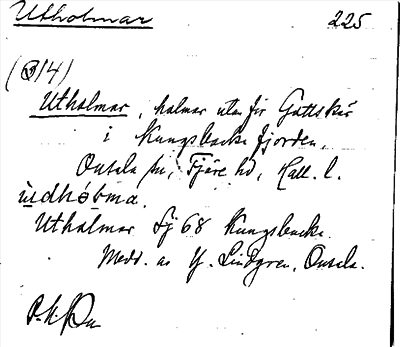 Utholmar 225
(314)
Utholmar, holmar utanför Gottskär
i Kungsbacka fjorden,
Onsala sn, Fjäre hd, Hall. l.
ùdhòɫma.
Utholmar Sj 68 Kungsbacka.
Medd. av Y. Lindgren, Onsala.